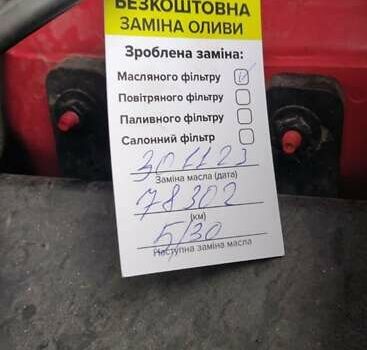 БЕЗКОШТОВНА
ЗАМІНА ОЛИВИ
Зроблена заміна:
Масляного фільтру
Повітряного фільтру
Паливного фільтру
Салонний фільтр
301123
Заміна масла (дата)
78302
(км)
5/30
Наступна заміна масла